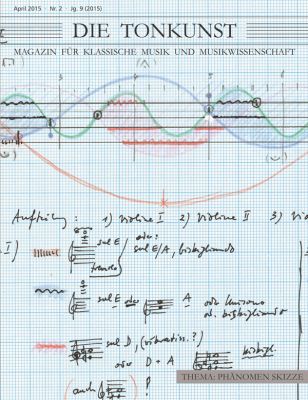 April 2015 · Nr. 2 · Jg. 9 (2015)
DIE TONKUNST
MAGAZIN FÜR KLASSISCHE MUSIK UND MUSIKWISSENSCHAFT
3 4 5 6
Aufteilung: 1) Violine I 2) Violine II 3) Vio
I) sul E oder:
sul E/A, bisbigliando
tremolo
sul E oder A oder unisono
od. bisbigliando
sul D, (vibratiss.?)
oder D + A bisbigl.
auch !
THEMA: PHÄNOMEN SKIZZE